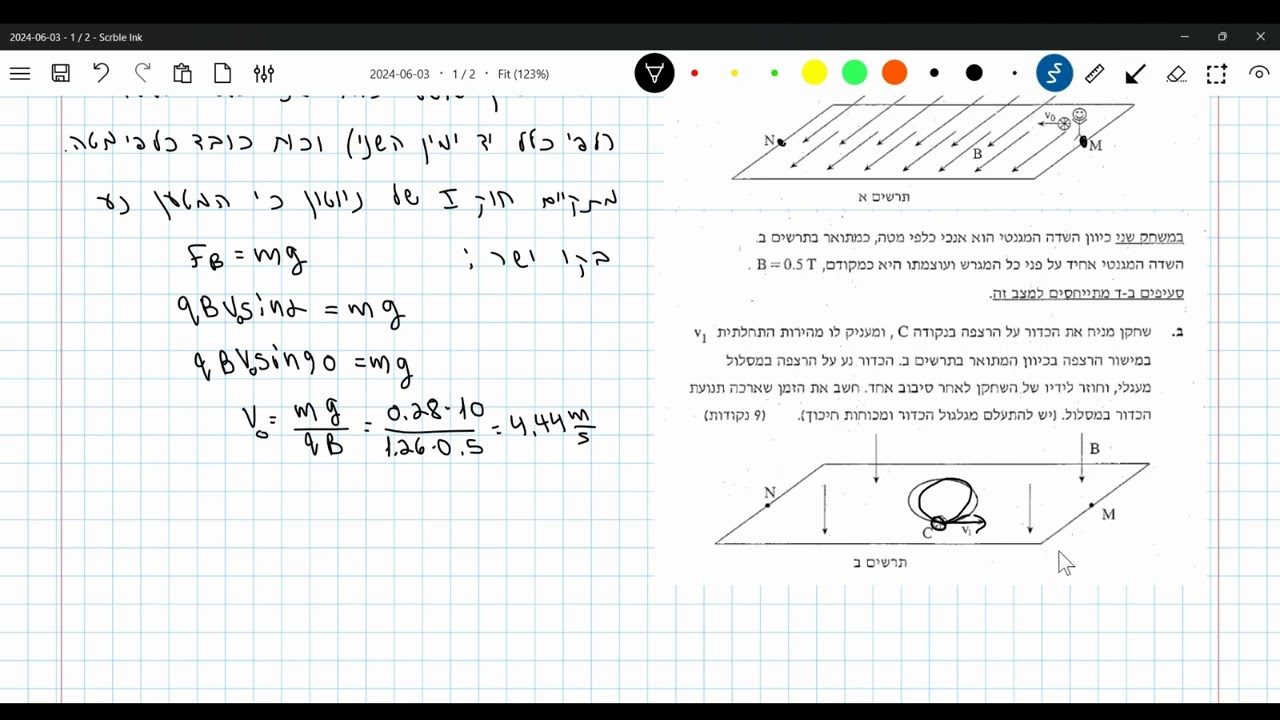 2024-06-03 - 1 / 2 - Scrble Ink
2024-06-03 • 1 / 2 • Fit (123%)
(לפי כלל יד ימין השני) וכוח כובד כלפי מטה.
מתקיים חוק I של ניוטון כי המטען נע
בקו ישר:
FB = mg
qBV₀sinα = mg
qBV₀sin90 = mg
V₀ = mg / qB = 0.28·10 / 1.26·0.5 = 4.44 m/s
v₀
N
M
B
תרשים א
במשחק שני כיוון השדה המגנטי הוא אנכי כלפי מטה, כמתואר בתרשים ב.
השדה המגנטי אחיד על פני כל המגרש ועוצמתו היא כמקודם, B = 0.5 T.
סעיפים ב-ד מתייחסים למצב זה.
ב. שחקן מניח את הכדור על הרצפה בנקודה C, ומעניק לו מהירות התחלתית v₁
במישור הרצפה בכיוון המתואר בתרשים ב. הכדור נע על הרצפה במסלול
מעגלי, וחוזר לידיו של השחקן לאחר סיבוב אחד. חשב את הזמן שארכה תנועת
הכדור במסלול. (יש להתעלם מגלגול הכדור ומכוחות חיכוך). (9 נקודות)
B
N
M
C
v₁
תרשים ב